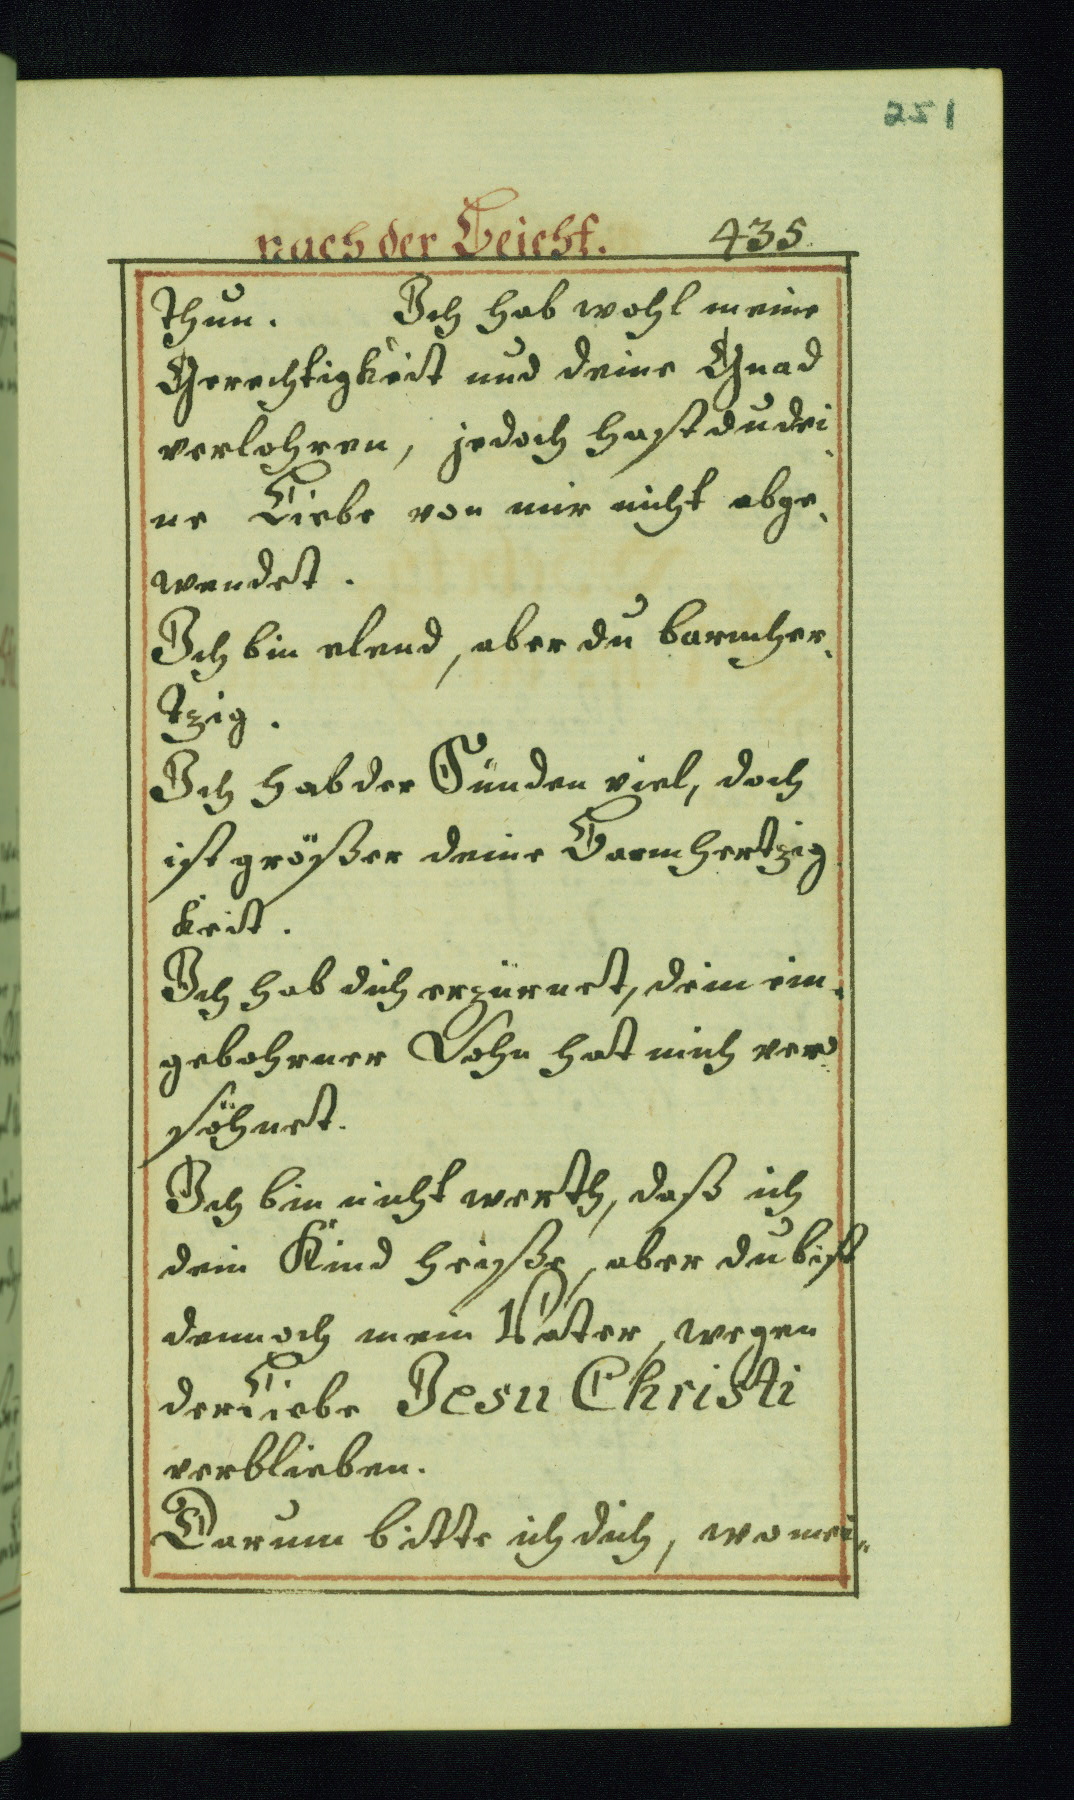 251
nach der Beicht. 435
thun. Ich hab wohl meine
Gerechtigkeit und deine Gnad
verlohren, jedoch hast du dei,
ne Liebe von mir nicht abge,
wendet.
Ich bin elend, aber du barmher,
tzig.
Ich hab der Sünden viel, doch
ist größer deine Barmhertzig
keit.
Ich hab dich erzürnet, dein ein,
gebohrner Sohn hat mich ver
söhnet.
Ich bin nicht werth, daß ich
dein Kind heysse, aber du bist
dennoch mein Vater, wegen
der Liebe Jesu Christi
verblieben.
Darum bitte ich dich, wo mei„